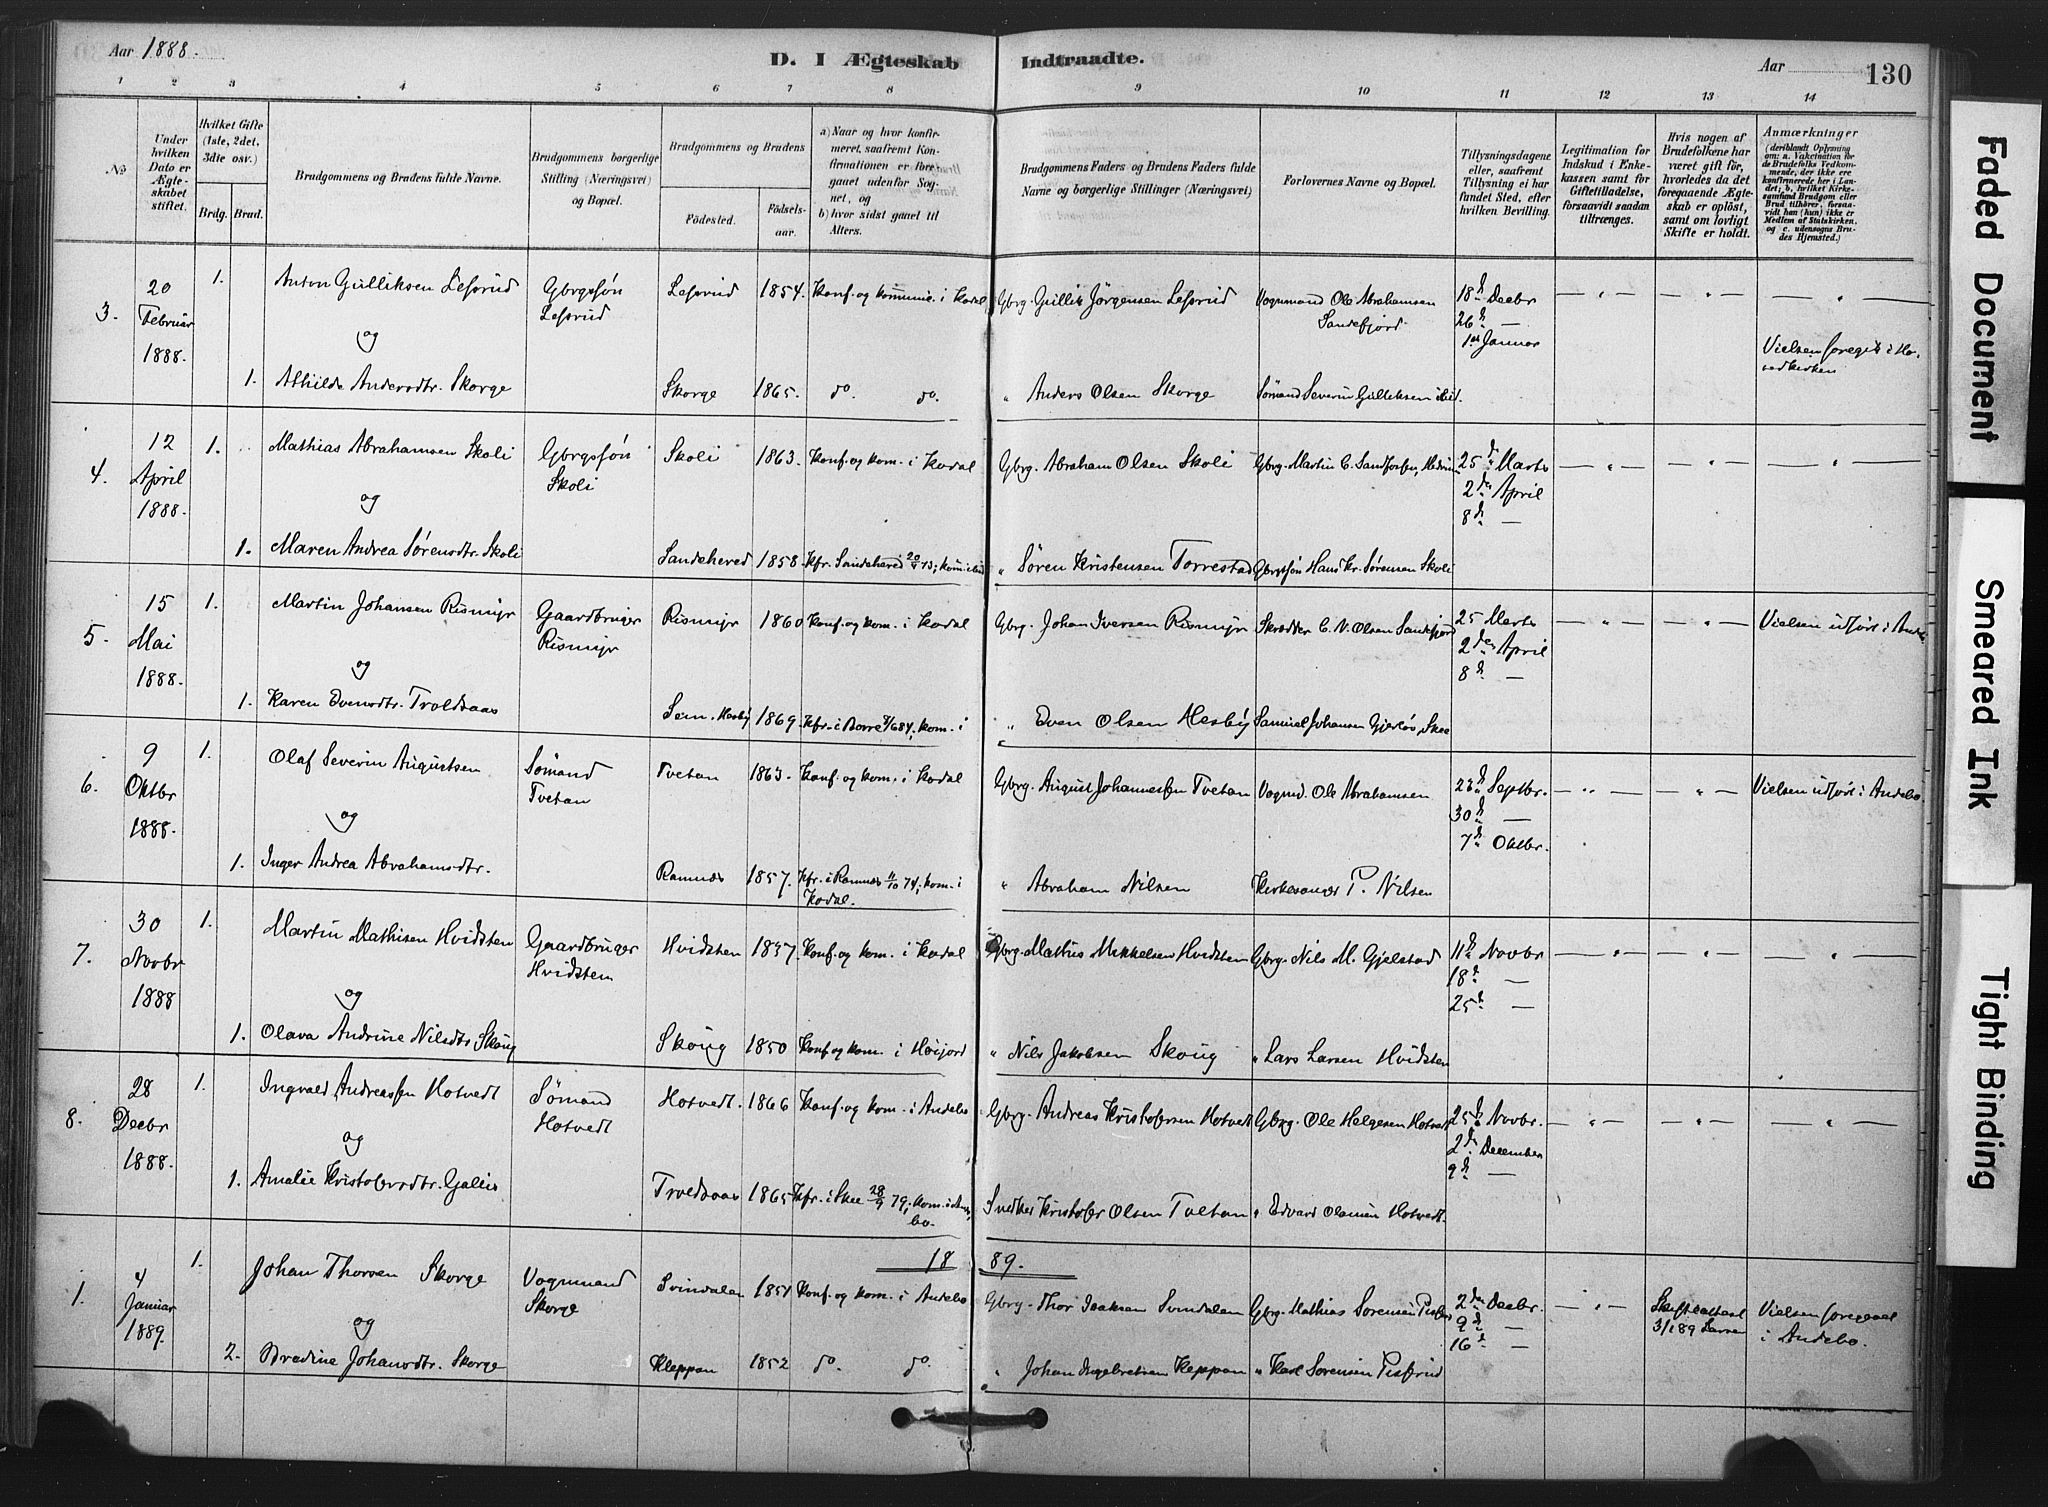 Aar 1888.
D. I Ægteskab Indtraadte.
Aar 130
1 2 3 4 5 6 7 8 9 10 11 12 13 14
No
Under hvilken Dato er Ægteskabet stiftet.
Hvilket Gifte (1ste, 2det, 3die osv.)
Brdg. Brud.
Brudgommens og Brudens fulde Navne.
Brudgommens borgerlige Stilling (Næringsvei) og Bopæl.
Brudgommens og Brudens
Födested. Födselsaar.
a) Naar og hvor konfirmeret, saafremt Konfirmationen er foregaaet udenfor Sognet, og
b) hvor sidst gaaet til Alters.
Brudgommens Faders og Brudens Faders fulde Navne og borgerlige Stillinger (Næringsvei)
Forlovernes Navne og Bopæl.
Tillysningsdagene eller, saafremt Tillysning ei har fundet Sted, efter hvilken Bevilling.
Legitimation for Indskud i Enkekassen samt for Giftetilladelse, forsaavidt saadan tiltrænges.
Hvis nogen af Brudefolkene har været gift för, hvorledes da det foregaaende Ægteskab er oplöst, samt om lovligt Skifte er holdt.
Anmærkninger (deriblandt Oplysning om: a. Vakcination for de Brudefolks Vedkommende, der ikke ere konfirmerede her i Landet; b. hvilket Kirkesamfund Brudgom eller Brud tilhörer, forsaavidt han (hun) ikke er Medlem af Statskirken, og c. udensogns Brudes Hjemsted.)
3. 20 Februar 1888. 1. Anton Gulliksen Lefsrud Gbrgsøn Lefsrud Lefsrud 1854. Konf. og kommun. i Kodal Gbrg. Gullik Jörgensen Lefsrud Vognmand Ole Abrahamsen Sandefjord 18d Decbr 26d — 1ste Januar — " — — " — — " —
og
Vielsen foregik i Hovedkirken
1. Athilde Andersdtr. Skorge Skorge 1865. do. do. " Anders Olsen Skorge Sømand Severin Gulliksen ibid.
4. 12 April 1888. 1. Mathias Abrahamsen Skoli Gbrgsøn Skoli Skoli 1863. Konf. og kom. i Kodal Gbrg. Abraham Olsen Skoli Gbrg. Martin C. 25d Marts 2den April 8d — — " — — " — — " —
og
1. Maren Andrea Sørensdtr. Skoli Sandehered 1858. Kfr. Sandehered 20/4 73; kom. ibid " Sören Kristensen Torrestad Gbrgsøn Hans Kr. Sørensen Skoli
5. 15 Mai 1888. 1. Martin Johansen Rismyr Gaardbruger Rismyr Rismyr 1860 Konf. og kom. i Kodal Gbrg. Johan Iversen Rismyr Skrædder C. N. Olsen Sandefjord 25 Marts 2den April 8d — — " — — " — Vielsen udført i Andebo
og
1. Karen Evensdtr. Troldsaas Sem. Hesby 1869. Kfr. i Borre 84; kom. i " Even Olsen Hesby Samuel Johansen Gjerløs, Skee
6. 9 Oktbr 1888. 1. Olaf Severin Augustsen Sømand Tvetan Tvetan 1863. Konf. og kom. i Kodal Gbrg. August Johannessen Tvetan Vognmd. Ole Abrahamsen 23d Septbr. 30d — 7d Oktbr. — " — — " — Vielsen udført i Andebo.
og
1. Inger Andrea Abrahamsdtr. Ramnæs 1857. Kfr. i Ramnæs 11/10 74; kom. i Kodal. " Abraham Nilsen Kirkesanger P. Nilsen
7. 30 Novbr 1888 1. Martin Mathisen Hvidsten Gaardbruger Hvidsten Hvidsten 1857. Konf. og kom. i Kodal Gbrg. Mathis Mikkelsen Hvidsten Gbrg. Nils M. Gjelstad 11d Novbr 18d — 25d — — " — — " — — " —
og
1. Olava Andrine Nilsdtr Skoug Skoug 1850 Konf. og kom. i Høijord " Nils Jakobsen Skoug " Lars Larsen Hvidsten
8. 28 Decbr 1888. 1. Ingvald Andreassen Hotvedt Sømand Hotvedt Hotvedt. 1866 Konf. og kom. i Andebo Gbrg. Andreas Kristofersen Hotvedt Gbrg. Ole Helgesen Hotvedt 25d Novbr. 2d December 9d — — " — — " — — " —
og
1. Amalie Kristofersdtr. Troldsaas 1865 Kfr. i Skee 28/9 79; kom. i Andebo. Snedker Kristofer Olsen Tvetan " Edvard Olausen Hotvedt.
1889.
1. 4 Januar 1889. 1. Johan Thorsen Skorge Vognmand Skorge Svindalen 1851 Konf. og kom. i Andebo Gbrg. Thor Isaksen Svindalen Gbrg. Mathias Sørensen 2den Decbr. 9d — 16d — — " — Skifteattest 3/1 89 Vielsen foregaaet i Andebo.
og
2. Bredine Johansdtr. Skorge Kleppan 1852 do. do. " Johan Ingebretsen Kleppan " Karl Sørensen
Faded Document
Smeared Ink
Tight Binding